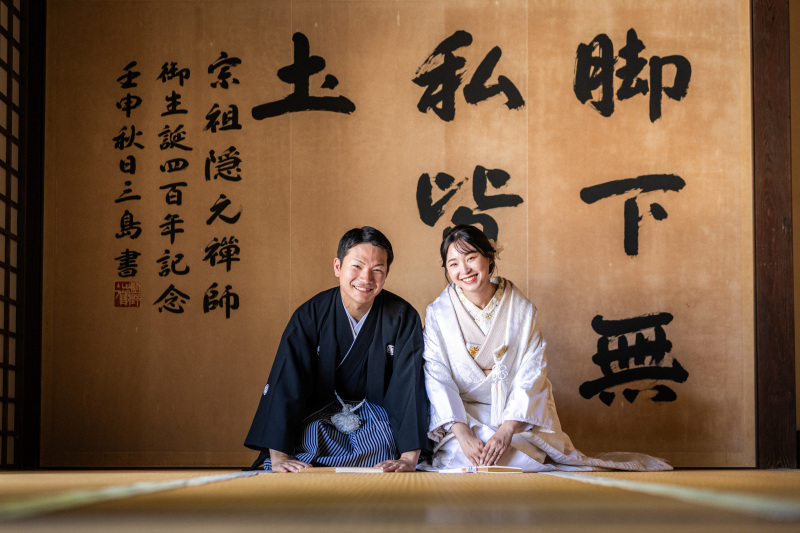 脚下無
私皆
土
宗祖隠元禪師
御生誕四百年記念
壬申秋日三島書